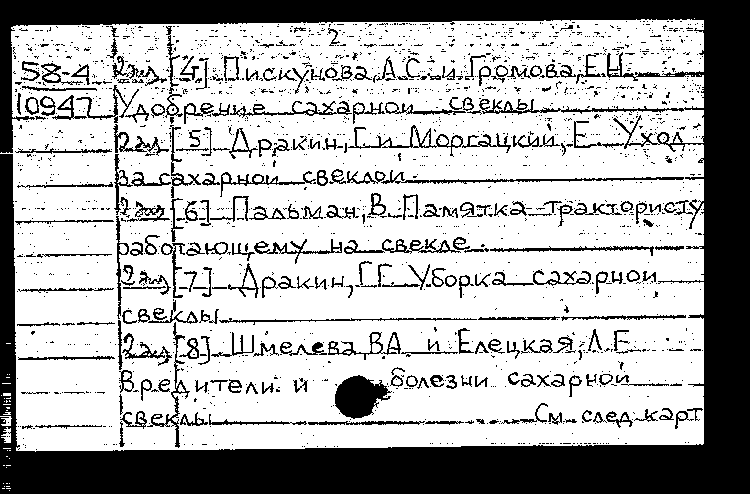 2
58-4 2 экз [4] Пискунова, А.С. и Громова, Е.Н.
10947 Удобрение сахарной свеклы
2 экз [5] Дракин, Г. и Моргацкий, Е. Уход
за сахарной свеклой.
2 экз [6] Пальман, В. Памятка трактористу
работающему на свекле.
2 экз [7] Дракин, Г.Е. Уборка сахарной
свеклы.
2 экз [8] Шмелева, В.А. и Елецкая, Л.Е.
Вредители и болезни сахарной
свеклы См. след. карт